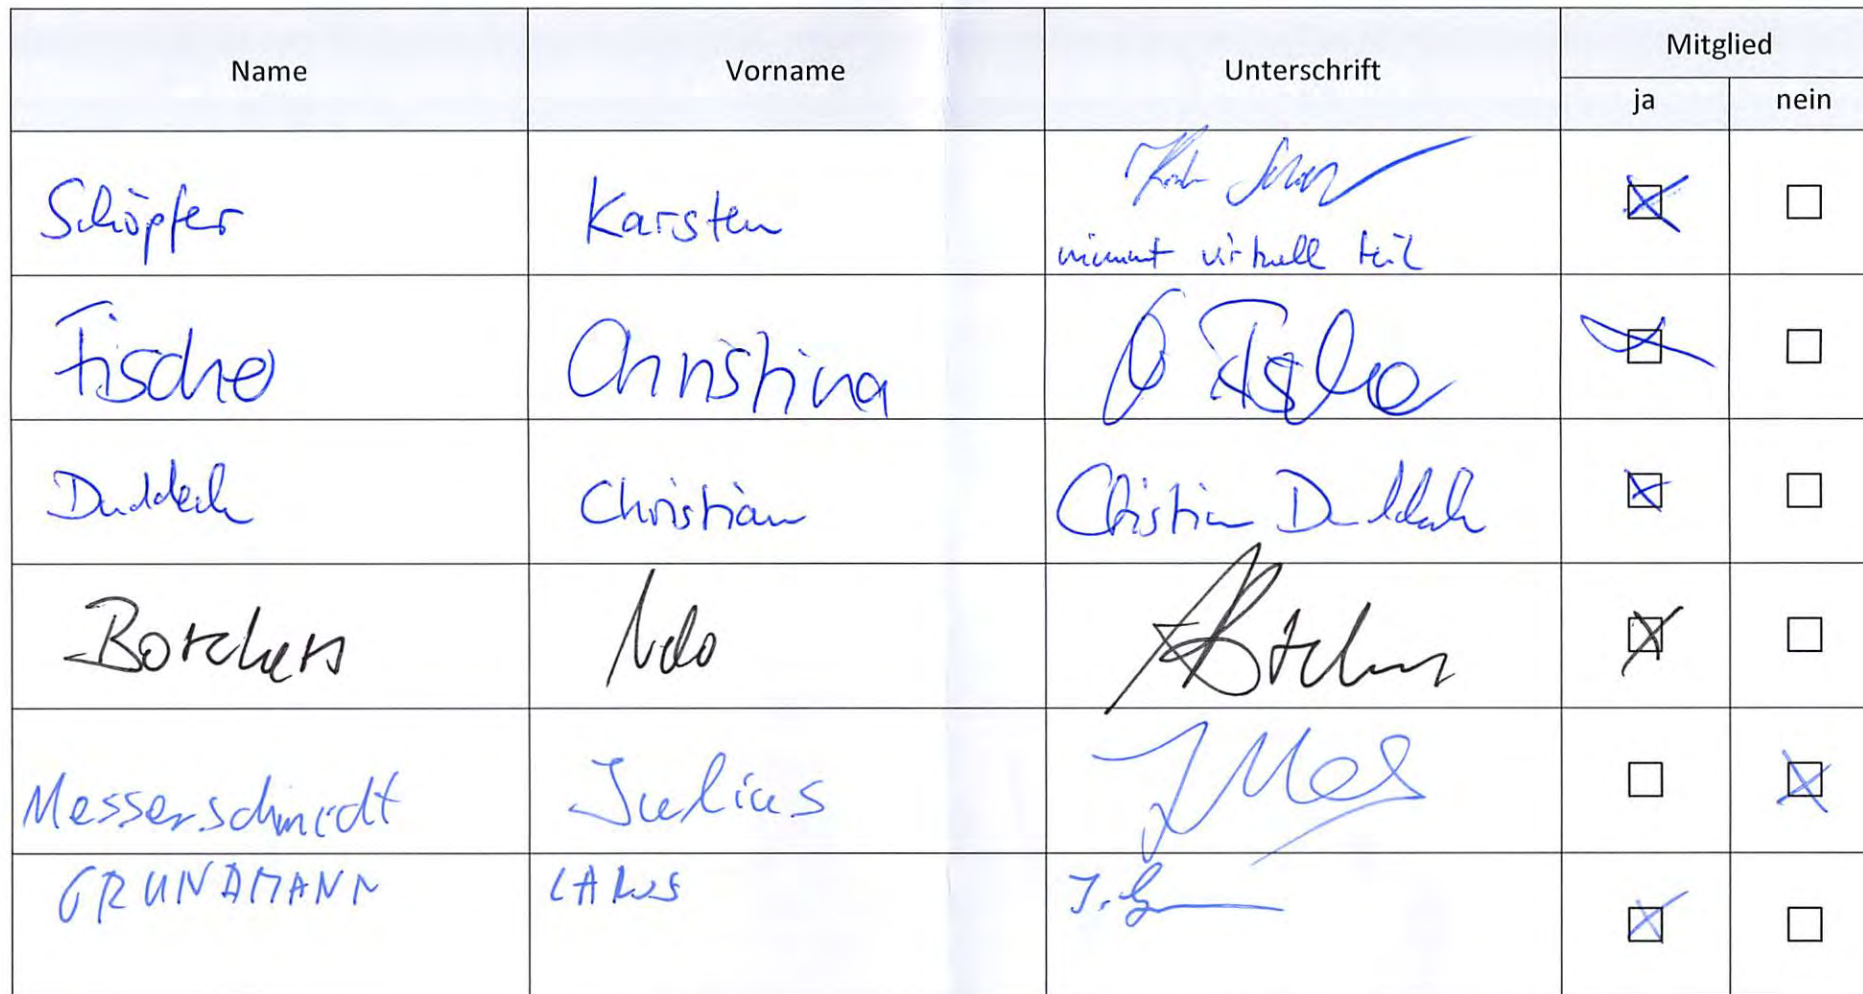 Name Vorname Unterschrift Mitglied
ja nein
Schöpfer Karsten
nimmt virtuell teil
Fischer Christina
Duddeck Christian Christian Duddeck
Borchers
Messerschmidt Julius
GRUNDMANN LARS